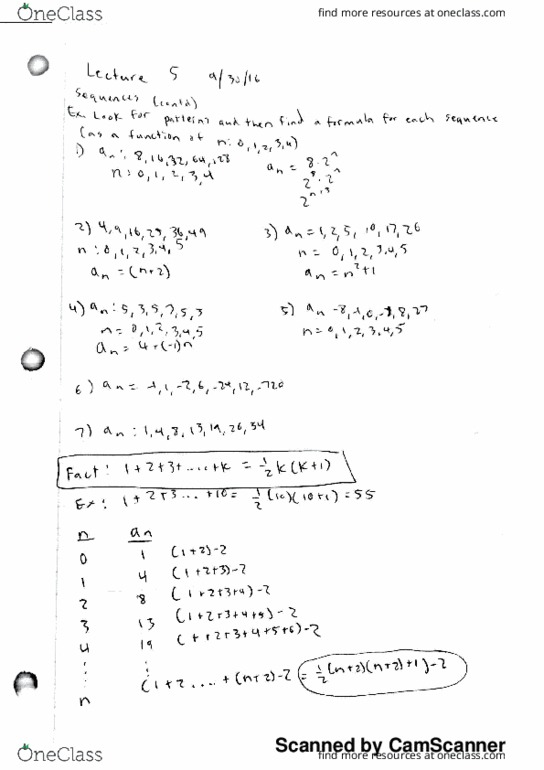 OneClass
find more resources at oneclass.com
Lecture 5 9/30/16
Sequences (contd)
Ex. Look for patterns and then find a formula for each sequence
(as a function of n: 0,1,2,3,4)
1) an: 8,16,32,64,128
n: 0,1,2,3,4
an = 8·2^n
2^3·2^n
2^n+3
2) 4,9,16,25,36,49
n: 0,1,2,3,4,5
an = (n+2)
3) an = 1,2,5,10,17,26
n = 0,1,2,3,4,5
an = n^2+1
4) an: 5,3,5,7,5,3
n = 0,1,2,3,4,5
an = 4+(-1)n
5) an -8,-1,0,-1,8,27
n: 0,1,2,3,4,5
6) an = -1,1,-2,6,-24,12,-720
7) an: 1,4,8,13,19,26,34
Fact: 1+2+3+.....+k = 1/2 k(k+1)
Ex: 1+2+3... +10 = 1/2 (10)(10+1) = 55
n an
0 1 (1+2)-2
1 4 (1+2+3)-2
2 8 (1+2+3+4)-2
3 13 (1+2+3+4+5)-2
4 19 (1+2+3+4+5+6)-2
n (1+2....+(n+2)-2 = 1/2(n+2)(n+2)+1)-2
Scanned by CamScanner
OneClass
find more resources at oneclass.com